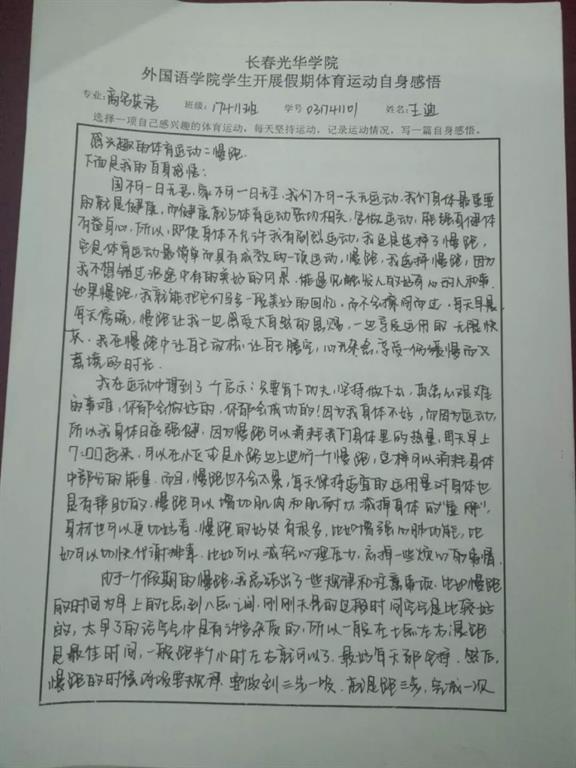 长春光华学院
外国语学院学生开展假期体育运动自身感悟
专业：商务英语 班级：17411班 学号 031741101 姓名：王迪
选择一项自己感兴趣的体育运动，每天坚持运动，记录运动情况，写一篇自身感悟。
感兴趣的体育运动：慢跑.
下面是我的自身感悟：
国不可一日无君，家不可一日无主，我们不可一天无运动，我们身体最重要
的就是健康，而健康就与体育运动密切相关，多做运动，能强身健体
有益身心。所以，即使身体不允许我有剧烈运动，我还是选择了慢跑，
它是体育运动最简单而具有成效的一项运动，慢跑，我选择慢跑，因为
我不想错过沿途中有的美好的风景。能遇见触发人的 有心的人和事.
如果慢跑，我就能把它们当多一段美好的回忆，而不会擦肩而过.每天早晨
每天傍晚，慢跑让我一边感受大自然的恩赐，一边享受运用的无限快
乐.我在慢跑中让自己放松，让自己腾空，心无杂念，享受一份缓慢而又
意境的时光.
我在运动中得到了一个启示：只要有下功夫，坚持做下去，再怎么艰难
的事难，你都会做好的，你都会成功的！因为我身体不好，而因为运动，
所以我身体日益强健，因为慢跑可以消耗我下身体里的热量，每天早上
7:00起来，可以在小区或是小路边上进行一个慢跑，这样可以消耗身体
中部份的能量.而且，慢跑也不会太累，每天保持适宜的运用量对身体也
是有帮助的.慢跑可以增加肌肉和肌耐力 减掉身体的
身材也可以更加好看.慢跑的好处有很多，比如增强心肺功能，比
如可以加快代谢排毒.比如可以减轻心理压力，忘掉一些烦心的事情.
为了一个假期的慢跑，我总结出了一些规律和注意事项.比如慢跑
的时间为早上的七点到八点之间.刚刚天亮的这段时间空气是比较好
的，太早了的话空气中是有许多杂质的，所以一般在七点左右慢跑
是最佳时间，一般跑半个小时左右就可以了.最好每天都坚持.然后，
慢跑的时候呼吸要规律.要做到三步一吸.就是跑三步，完成一次